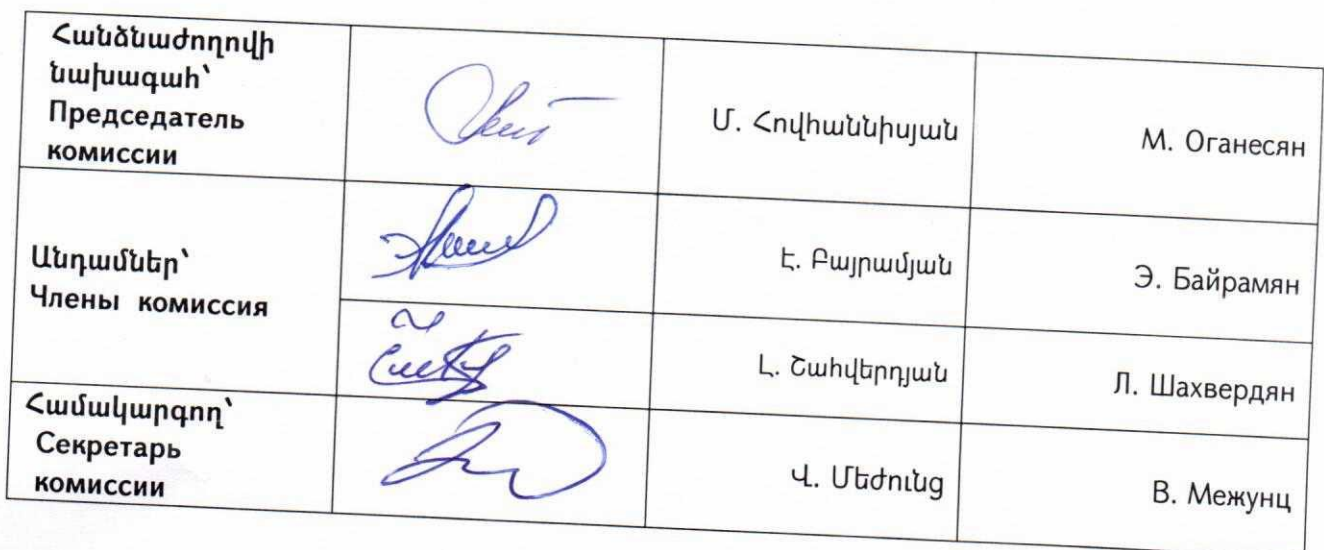 Հանձնաժողովի
նախագահ՝
Председатель
комиссии
Մ. Հովհաննիսյան
М. Оганесян
Անդամներ՝
Члены комиссия
Է. Բայրամյան
Э. Байрамян
Լ. Շահվերդյան
Л. Шахвердян
Համակարգող՝
Секретарь
комиссии
Վ. Մեժունց
В. Межунц